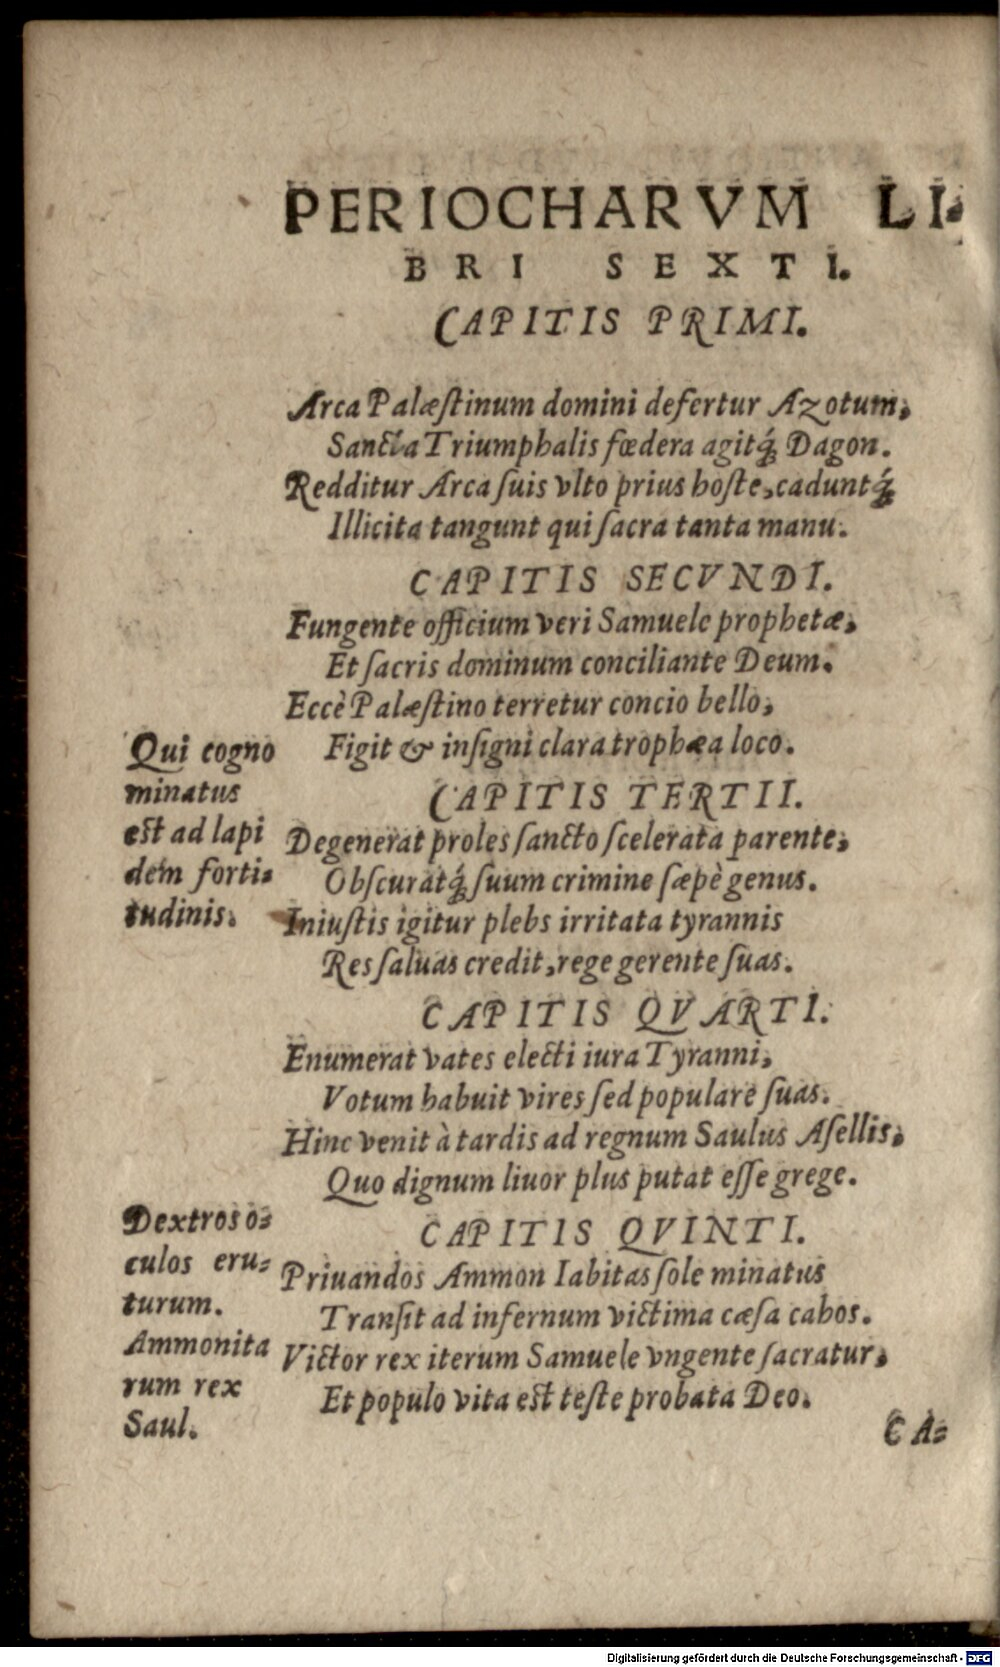 PERIOCHARVM LI-
BRI SEXTI.
CAPITIS PRIMI.
Arca Palæstinum domini defertur Azotum,
Sancta Triumphalis fœdera agitq́; Dagon.
Redditur Arca suis vlto prius hoste, caduntq́;
Illicita tangunt qui sacra tanta manu.
CAPITIS SECVNDI.
Fungente officium veri Samuele prophetæ,
Et sacris dominum conciliante Deum.
Eccè Palæstino terretur concio bello,
Figit & insigni clara trophæa loco.
Qui cogno
minatus
est ad lapi
dem forti-
tudinis.
CAPITIS TERTII.
Degenerat proles sancto scelerata parente,
Obscuratq́; suum crimine sæpè genus.
Iniustis igitur plebs irritata tyrannis
Res saluas credit, rege gerente suas.
CAPITIS QVARTI.
Enumerat vates electi iura Tyranni,
Votum habuit vires sed populare suas.
Hinc venit à tardis ad regnum Saulus Asellis,
Quo dignum liuor plus putat esse grege.
CAPITIS QVINTI.
Priuandos Ammon Iabitas sole minatus
Transit ad infernum victima cæsa cahos.
Victor rex iterum Samuele vngente sacratur,
Et populo vita est teste probata Deo.
Dextros o-
culos eru-
turum.
Ammonita
rum rex
Saul.
CA-
Digitalisierung gefördert durch die Deutsche Forschungsgemeinschaft - DFG